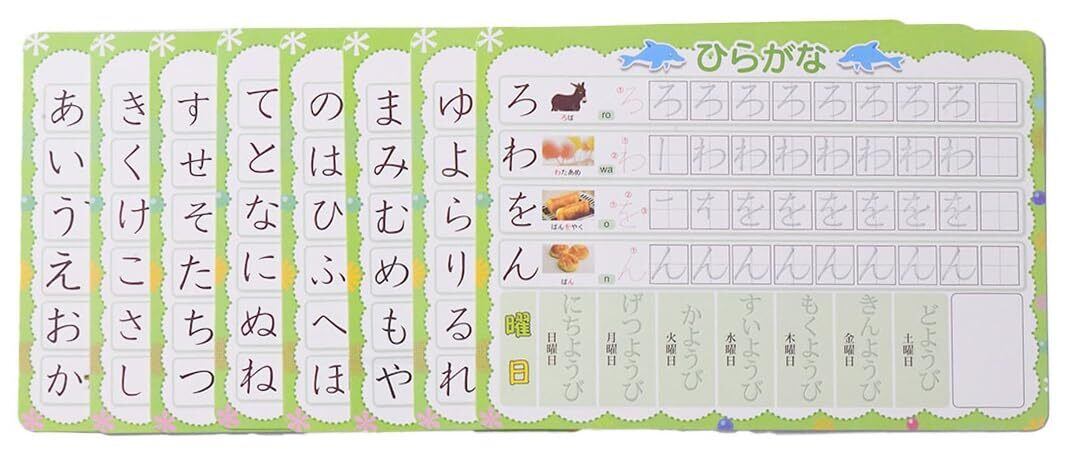 あ
い
う
え
お
か
き
く
け
こ
さ
し
す
せ
そ
た
ち
つ
て
と
な
に
ぬ
ね
の
は
ひ
ふ
へ
ほ
ま
み
む
め
も
や
ゆ
よ
ら
り
る
れ
ひらがな
ろ ろば ro ① ろ ろ ろ ろ ろ ろ ろ ろ ろ
わ わたあめ wa ① ② わ わ わ わ わ わ わ わ
を ぱんをやく o ① ② ③ を を を を を を を
ん ぱん n ① ん ん ん ん ん ん ん ん ん
曜日
にちようび
日曜日
げつようび
月曜日
かようび
火曜日
すいようび
水曜日
もくようび
木曜日
きんようび
金曜日
どようび
土曜日